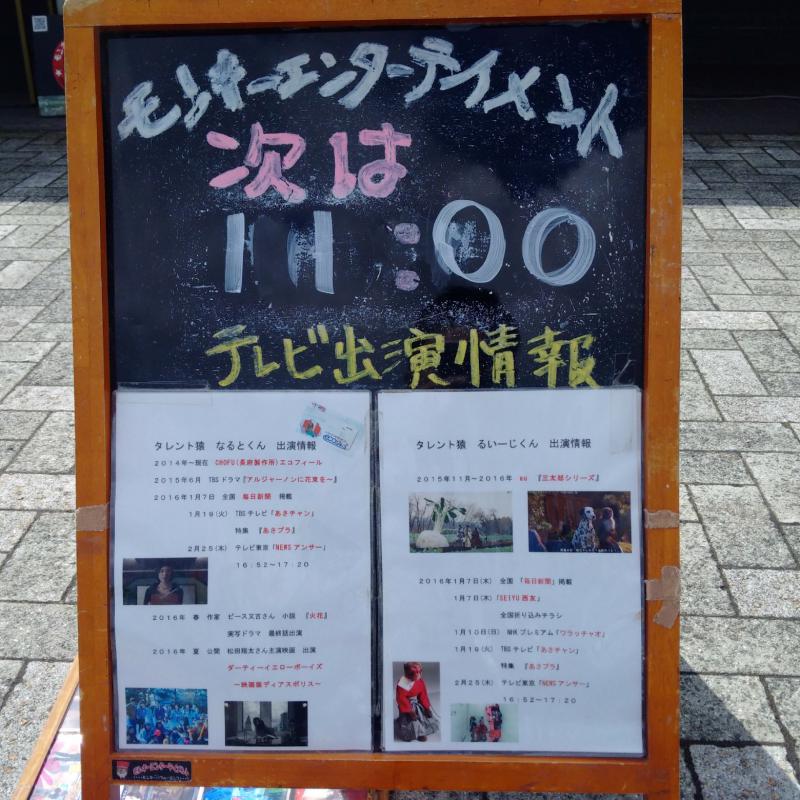 モンキーエンターテイメント
次は
11:00
テレビ出演情報
タレント猿 なるとくん 出演情報
2014年～現在 CHOFU(長府製作所)エコフィール
2015年6月 TBSドラマ『アルジャーノンに花束を～』
2016年1月7日 全国 毎日新聞 掲載
1月19(火) TBSテレビ「あさチャン」
特集 『あさプラ』
2月25(木) テレビ東京「NEWSアンサー」
16:52～17:20
2016年 春 作家 ピース又吉さん 小説 『火花』
実写ドラマ 最終話出演
2016年 夏 公開 松田翔太さん主演映画 出演
ダーティーイエローボーイズ
～映画版ディアスポリス～
タレント猿 るいーじくん 出演情報
2015年11月～2016年 au 『三太郎シリーズ』
2016年1月7日(木) 全国 「毎日新聞」掲載
1月7日(木)「SEIYU西友」
全国折り込みチラシ
1月10日(日) NHKプレミアム「ワラッチャオ」
1月19(火) TBSテレビ「あさチャン」
特集 『あさプラ』
2月25(木) テレビ東京「NEWSアンサー」
16:52～17:20